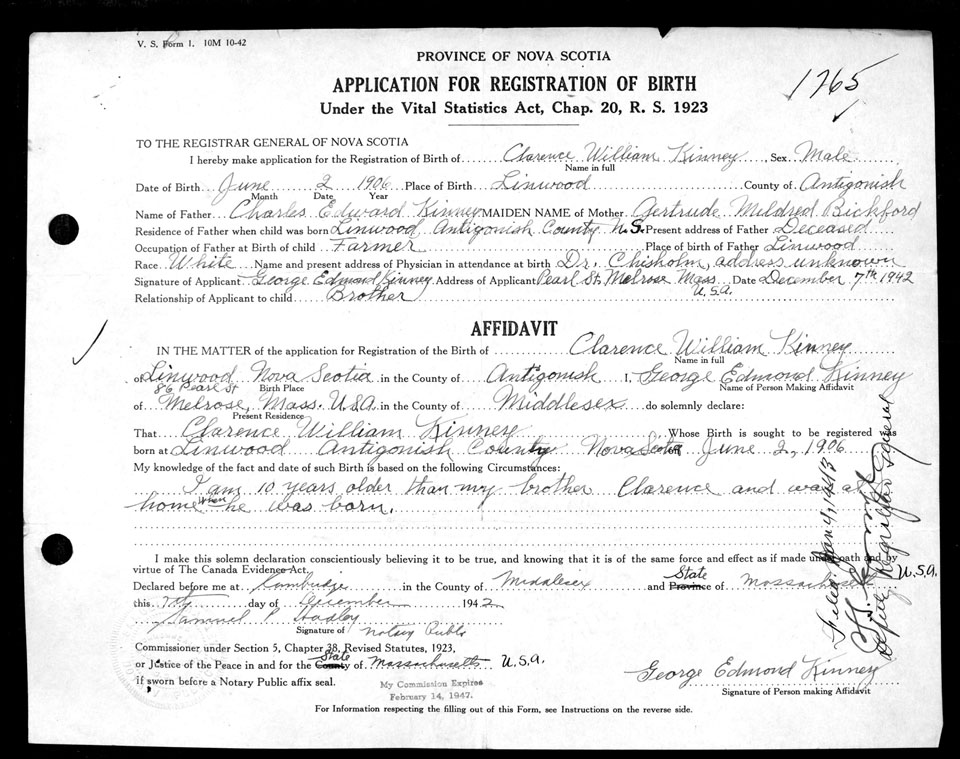 V. S. Form 1. 10M 10-42
PROVINCE OF NOVA SCOTIA
APPLICATION FOR REGISTRATION OF BIRTH
Under the Vital Statistics Act, Chap. 20, R. S. 1923
1765
TO THE REGISTRAR GENERAL OF NOVA SCOTIA
I hereby make application for the Registration of Birth of Clarence William Kinney, Sex Male
Name in full
Date of Birth June 2 1906 Place of Birth Linwood County of Antigonish
Month Date Year
Name of Father Charles Edward Kinney MAIDEN NAME of Mother Gertrude Mildred Bickford
Residence of Father when child was born Linwood Antigonish County N.S. Present address of Father Deceased
Occupation of Father at Birth of child Farmer Place of birth of Father Linwood
Race White Name and present address of Physician in attendance at birth Dr. Chisholm, address unknown
Signature of Applicant George Edmond Kinney Address of Applicant Pearl St. Melrose Mass Date December 7th 1942
U.S.A.
Relationship of Applicant to child Brother
AFFIDAVIT
IN THE MATTER of the application for Registration of the Birth of Clarence William Kinney
Name in full
of Linwood Nova Scotia in the County of Antigonish I, George Edmond Kinney
86 Pearl St Birth Place Name of Person Making Affidavit
of Melrose, Mass. U.S.A. in the County of Middlesex do solemnly declare:
Present Residence
That Clarence William Kinney Whose Birth is sought to be registered was
born at Linwood Antigonish County Nova Scotia June 2, 1906
My knowledge of the fact and date of such Birth is based on the following Circumstances:
I am 10 years older than my brother Clarence and was at
home when he was born.
I make this solemn declaration conscientiously believing it to be true, and knowing that it is of the same force and effect as if made under oath and by
virtue of The Canada Evidence Act.
Declared before me at Cambridge in the County of Middlesex and State Province of Massachusetts U.S.A.
this 7th day of December 1942
Samuel P Hadley
Signature of Notary Public
Commissioner under Section 5, Chapter 38, Revised Statutes, 1923,
or Justice of the Peace in and for the State County of Massachusetts U.S.A.
If sworn before a Notary Public affix seal.
My Commission Expires
February 14, 1947.
George Edmond Kinney
Signature of Person making Affidavit
For Information respecting the filling out of this Form, see Instructions on the reverse side.
Filed Jan 4, 1943
Deputy Registrar General